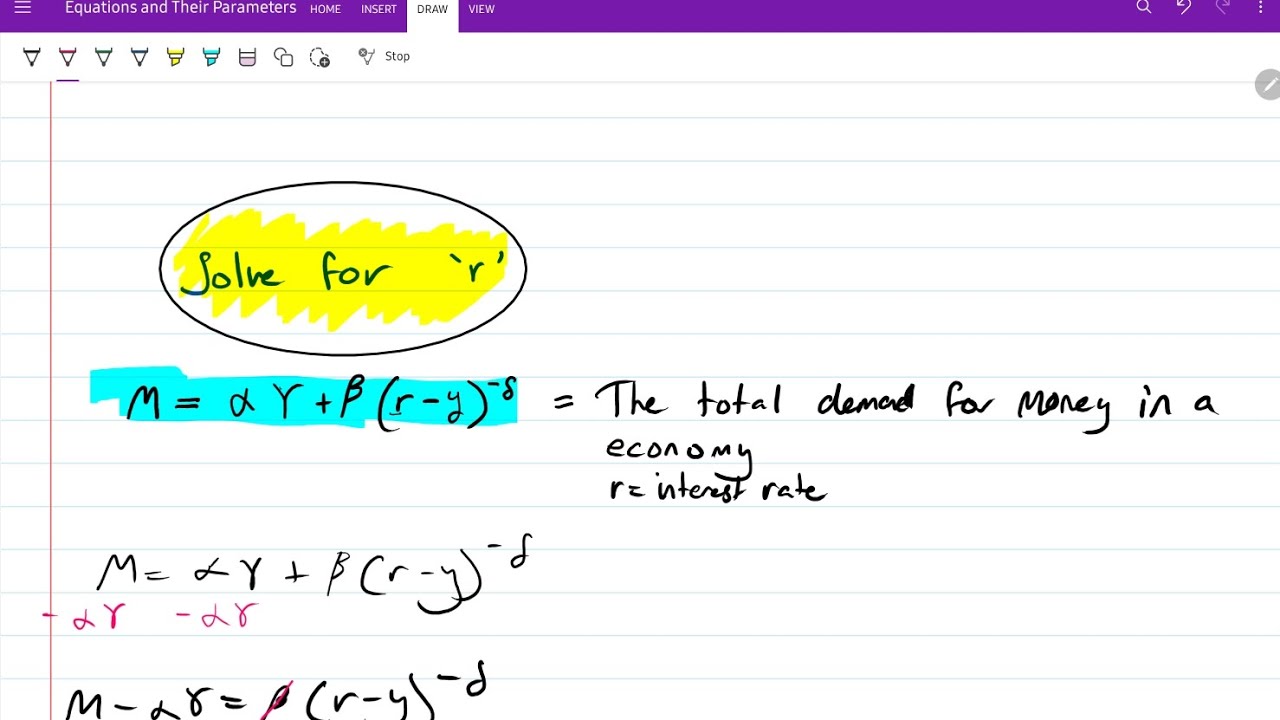 Equations and Their Parameters HOME INSERT DRAW VIEW
Stop
Solve for 'r'
M = αY + β(r-y)^-δ = The total demad for money in a
economy
r = interest rate
M = αY + β(r-y)^-δ
-αY -αY
M - αY = β(r-y)^-δ